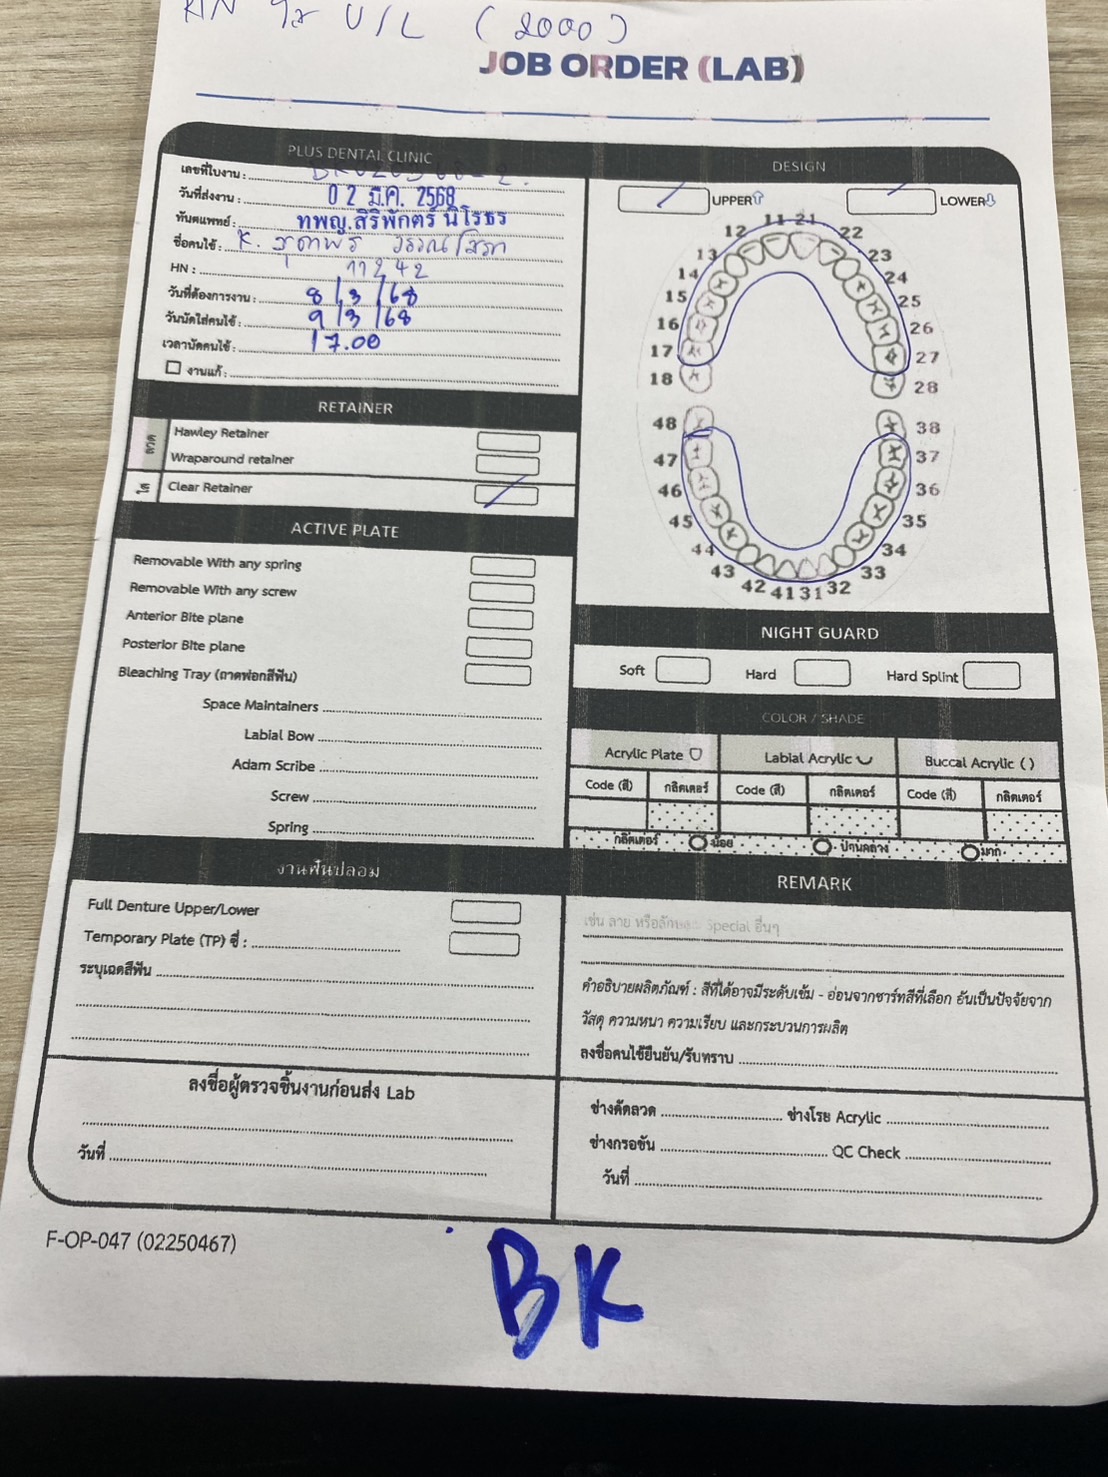 ใส U/L (2000)
JOB ORDER (LAB)
PLUS DENTAL CLINIC
เลขที่ใบงาน :
วันที่ส่งงาน : 02 มี.ค. 2568
ทันตแพทย์ : ทพญ.สิริพักตร์ นิโรธร
ชื่อคนไข้ : K.
HN : 11242
วันที่ต้องการงาน : 8/3/68
วันนัดใส่คนไข้ : 9/3/68
เวลานัดคนไข้ : 17.00
งานแก้ :
RETAINER
ลวด
Hawley Retainer
Wraparound retainer
ใส
Clear Retainer
ACTIVE PLATE
Removable With any spring
Removable With any screw
Anterior Bite plane
Posterior Bite plane
Bleaching Tray (ถาดฟอกสีฟัน)
Space Maintainers
Labial Bow
Adam Scribe
Screw
Spring
DESIGN
UPPER LOWER
11 21
12 22
13 23
14 24
15 25
16 26
17 27
18 28
48 38
47 37
46 36
45 35
44 34
43 33
42 41 31 32
NIGHT GUARD
Soft Hard Hard Splint
COLOR / SHADE
Acrylic Plate Labial Acrylic Buccal Acrylic ( )
Code (สี) กลิตเตอร์ Code (สี) กลิตเตอร์ Code (สี) กลิตเตอร์
กลิตเตอร์ น้อย ปานกลาง มาก
งานฟันปลอม
Full Denture Upper/Lower
Temporary Plate (TP) ซี่ :
ระบุเฉดสีฟัน
REMARK
เช่น ลาย หรือลักษณะ Special อื่นๆ
คำอธิบายผลิตภัณฑ์ : สีที่ได้อาจมีระดับเข้ม - อ่อนจากชาร์ทสีที่เลือก อันเป็นปัจจัยจาก
วัสดุ ความหนา ความเรียบ และกระบวนการผลิต
ลงชื่อคนไข้ยืนยัน/รับทราบ
ลงชื่อผู้ตรวจชิ้นงานก่อนส่ง Lab
วันที่
ช่างดัดลวด ช่างโรย Acrylic
ช่างกรอขัน QC Check
วันที่
F-OP-047 (02250467)
BK